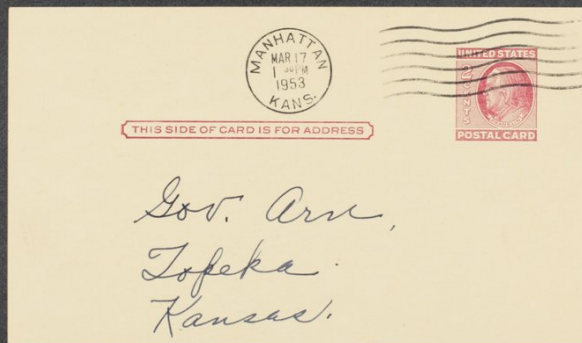 MANHATTAN
MAR 17
1 30 PM
1953
KANS.
UNITED STATES
2 CENTS
POSTAL CARD
THIS SIDE OF CARD IS FOR ADDRESS
Gov. Arn,
Topeka.
Kansas.